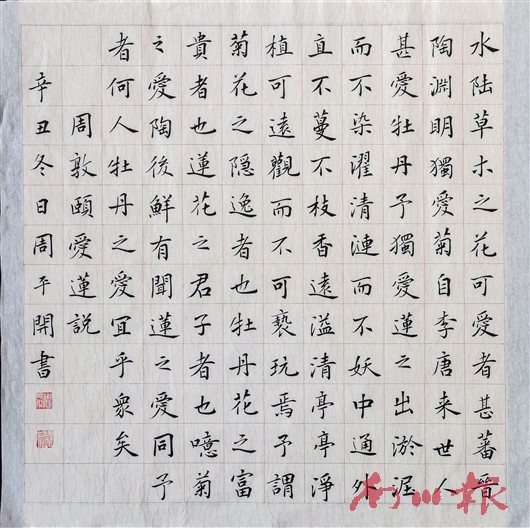 水陸草木之花可愛者甚蕃晉
陶淵明獨愛菊自李唐來世人
甚愛牡丹予獨愛蓮之出淤泥
而不染濯清漣而不妖中通外
直不蔓不枝香遠溢清亭亭淨
植可遠觀而不可褻玩焉予謂
菊花之隱逸者也牡丹花之富
貴者也蓮花之君子者也噫菊
之愛陶後鮮有聞蓮之愛同予
者何人牡丹之愛宜乎衆矣
周敦頤愛蓮說
辛丑冬日周平開書